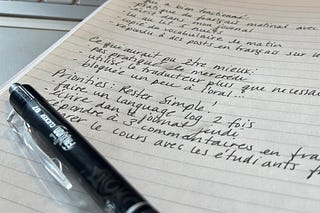 bien fonctionné:
du français matinal avec
lu
vocabulaire le matin
répondu à des posts en français sur le
Ce qui aurait pu être mieux:
- pas pratiqué mercredi
- utilisé le traducteur plus que nécessaire
- bloquée un peu à l'oral...
Priorities: Rester simple!
faire un language log 2 fois
écrire dans le journal jeudi
répondre à 3 commentaires en fra
le cours avec les étudiants f